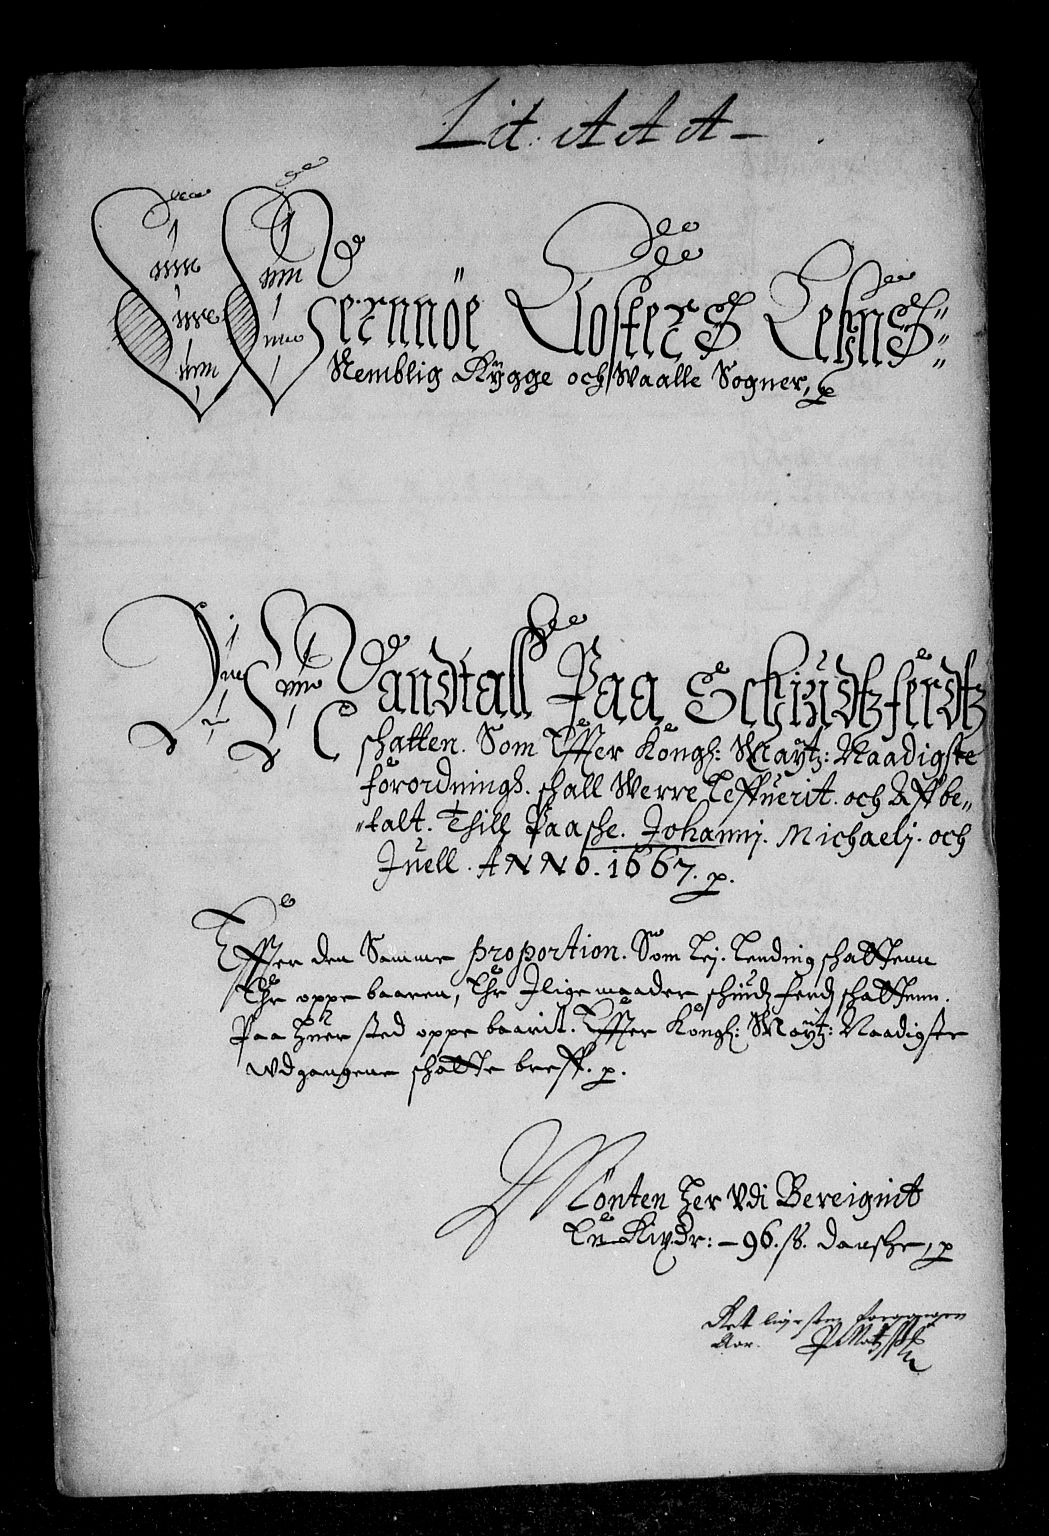 Lit. A A A
Wernnöe Closters Lehns
Nemblig Rÿgge och Waalle Sogner, p
Mandtall Paa Schÿdtzferdtz
schatten. Som Effter Kongl: Maÿtz: Naadigste
forordnings. schall Werre Leffuerit. och Aff be„
„talt. Thill Paasche. Johannj. Michaelj. och
Juell. ANNO. 1667. p.
Effter den Samme proportion. Som Lej. Lending schattenn
Ehr oppe baaren, Ehr Jlige maader schiudz ferdz schattenn.
Paa huer sted oppe baarit. Effter Kongl: Maÿtz: Naadigste
wdgangene schatte breff. p.
Mönten her Vdi Bereignit
En Rixdr: – 96. ß. dansche, p
Ret
Aar.